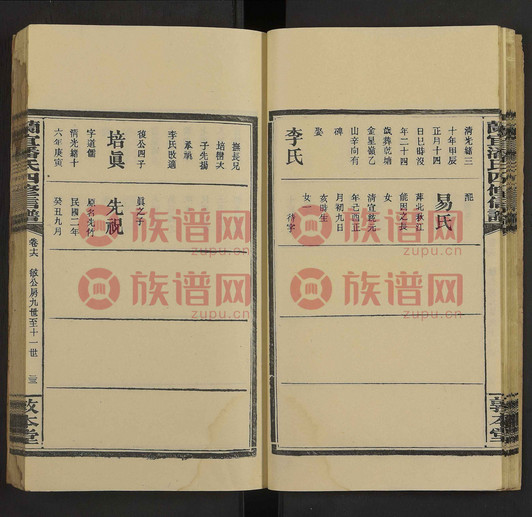 蘭宜潘氏四修信譜
清光緒三
十年甲辰
正月十四
日巳時沒
年二十四
歲葬乾塘
金星嶺乙
山辛向有
碑
娶
李氏
配
易氏
葬北秋江
能國之長
女
清宣統元
年己酉正
月初九日
亥時生
女一
待字
敦本堂
撫長兄
培樹次
子先揚
承嗣
李氏改適
復公四子
培眞
字道儒
清光緒十
六年庚寅
眞之子
先祝
原名先竹
民國二年
癸丑九月
蘭宜潘氏四修信譜
卷十六
敏公房九世至十一世
敦本堂
族谱网
www.zupu.cn